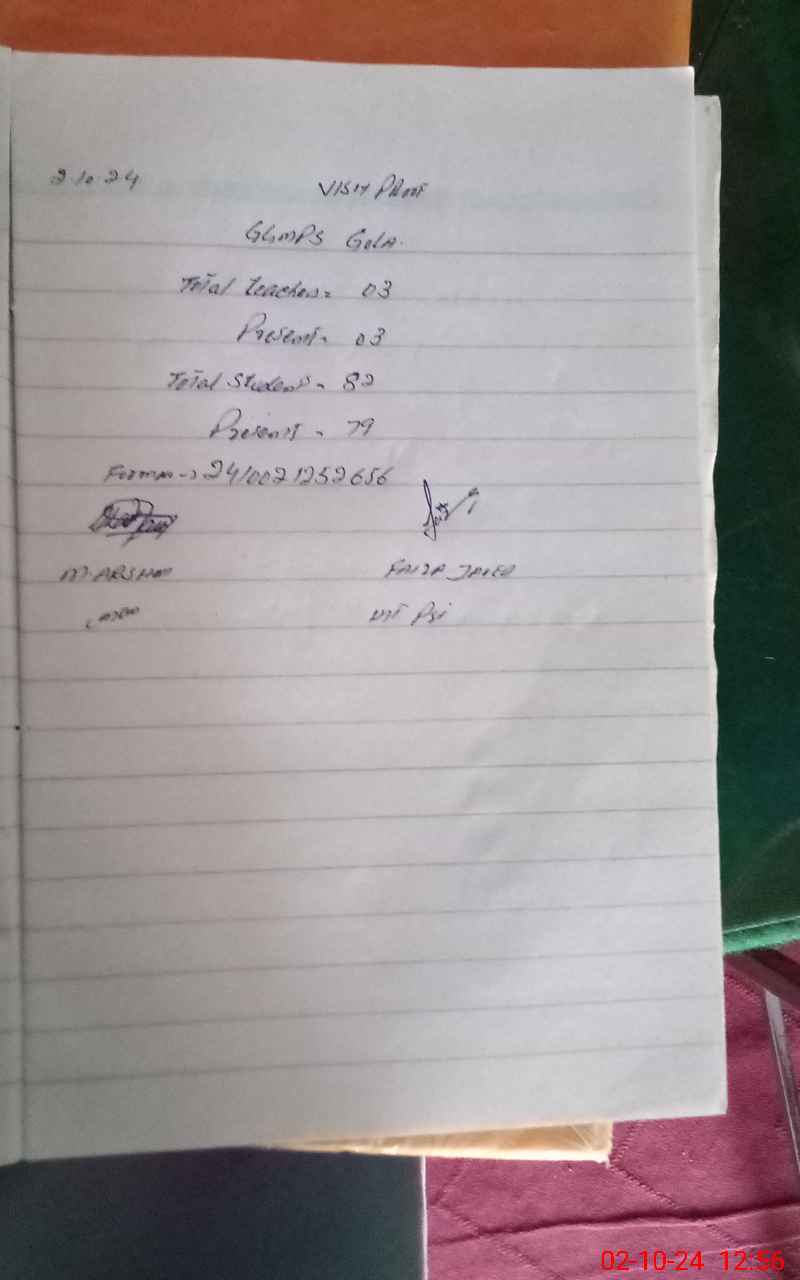 2.10.24 VISIT PROOF
GGMPS GOLA.
Total teachers= 03
Present= 03
Total Students = 82
Present = 79
2410021252656
M. ARSHAD FAIZA JAVED
02-10-24 12:56